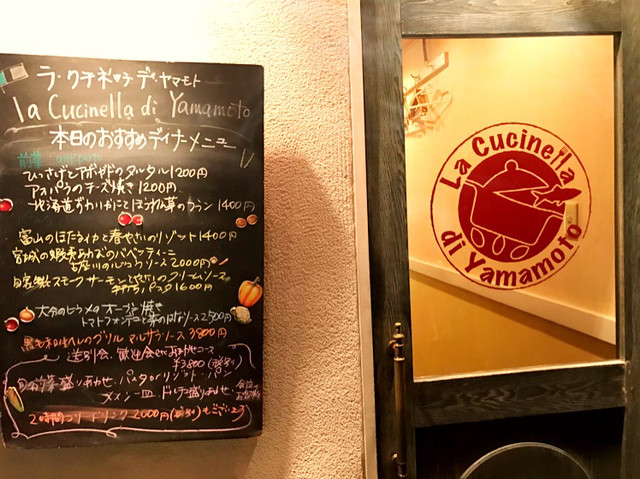 ラ・クチネッラ・ディ・ヤマモト
La Cucinella di Yamamoto
本日のおすすめディナーメニュー
前菜
アボガドのタルタル 1200円
アスパラのチーズ焼き 1200円
北海道ずわいがにとほうれん草の 1400円
富山のほたるいかと春やさいのリゾット 1400円
宮城の
ソース 2000円
自家製スモークサーモンと のクリームソース
1600円
大分のヒラメのオーブン焼き
トマトフォンデュと菜のはなソース 2500円
黒毛和牛 のグリル マルサラソース 3800円
送別会、歓迎会 コース
¥3800
前菜盛りあわせ、パスタorリゾット・パン
メイン一皿 ドルチェ盛りあわせ
2時間 ドリンク 2000円 もございます
La Cucinella
di Yamamoto